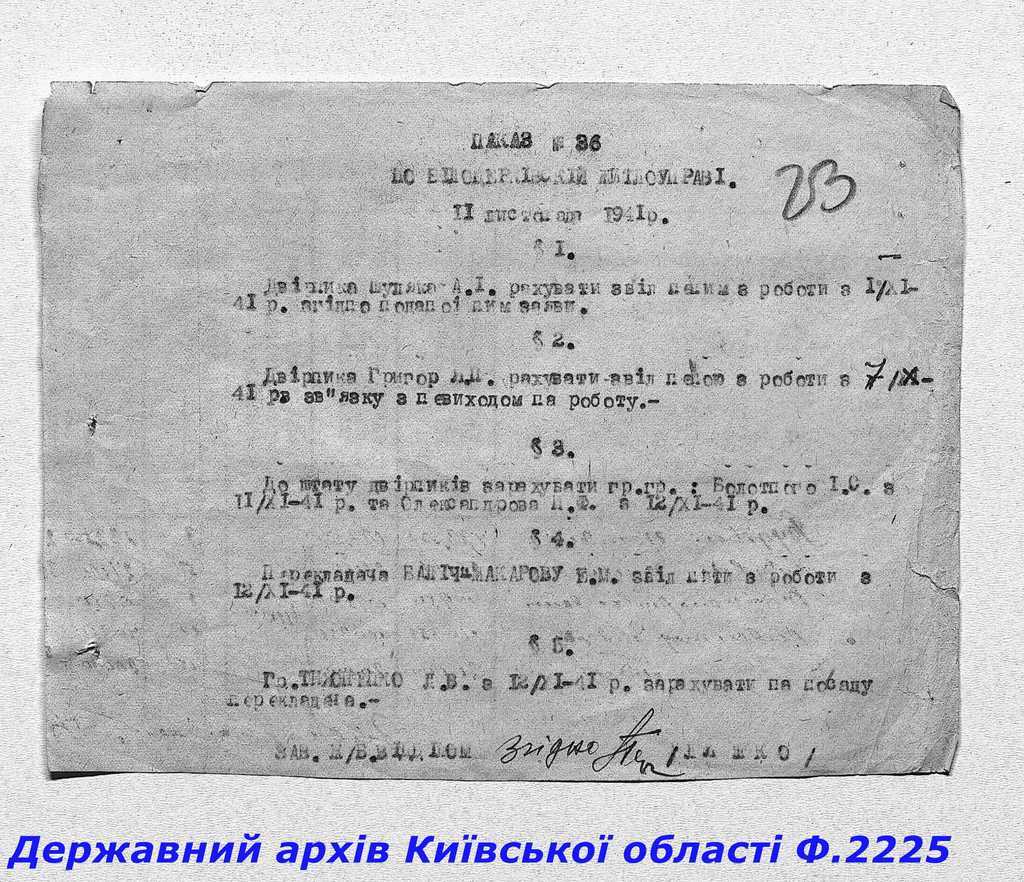 НАКАЗ № 36
ПО БІЛОЦЕРКІВСКІЙ ЖИТЛОУПРАВІ.
23
11 листопада 1941р.
§ I.
Двірника А.І. рахувати звільненим з роботи з I/XI-
41 р. згідно поданої ним заяви.
§ 2.
Двірника Григор рахувати звільненою з роботи з 7/XI-
41 рв зв"язку з невиходом на роботу.-
§ 3.
До штату двірників зарахувати гр.гр.: Болотного І.С. з
11/XI-41 р. та Олександрова з 12/XI-41 р.
§ 4.
Перекладача МАКАРОВУ звільнити з роботи з
12/XI-41 р.
§ 5.
Гр. з 12/XI-41 р. зарахувати на посаду
перекладача.-
ЗАВ. ВІДДІЛОМ згідно
Державний архів Київської області Ф.2225